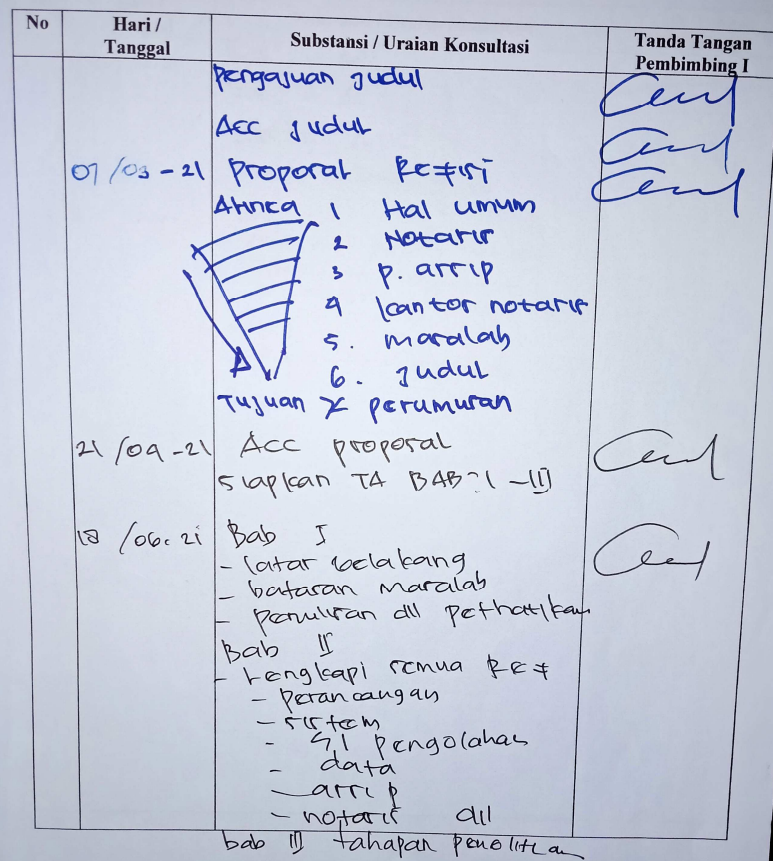 No Hari / Tanggal Substansi / Uraian Konsultasi Tanda Tangan Pembimbing I
Pengajuan Judul
Acc Judul
07/03-21 Proposal Refisi
1 Hal umum
2 Notaris
3 P. arsip
4 kantor notaris
5. masalah
6. Judul
Tujuan perumusan
21/04-21 Acc proposal
Siapkan TA BAB I - III
18/06-21 Bab I
- latar belakang
- batasan masalah
- penulisan dll perhatikan
Bab II
- Lengkapi semua Ref
- perancangan
- sistem
- SI pengolahan
- data
- arsip
- notaris dll
bab III tahapan penelitian